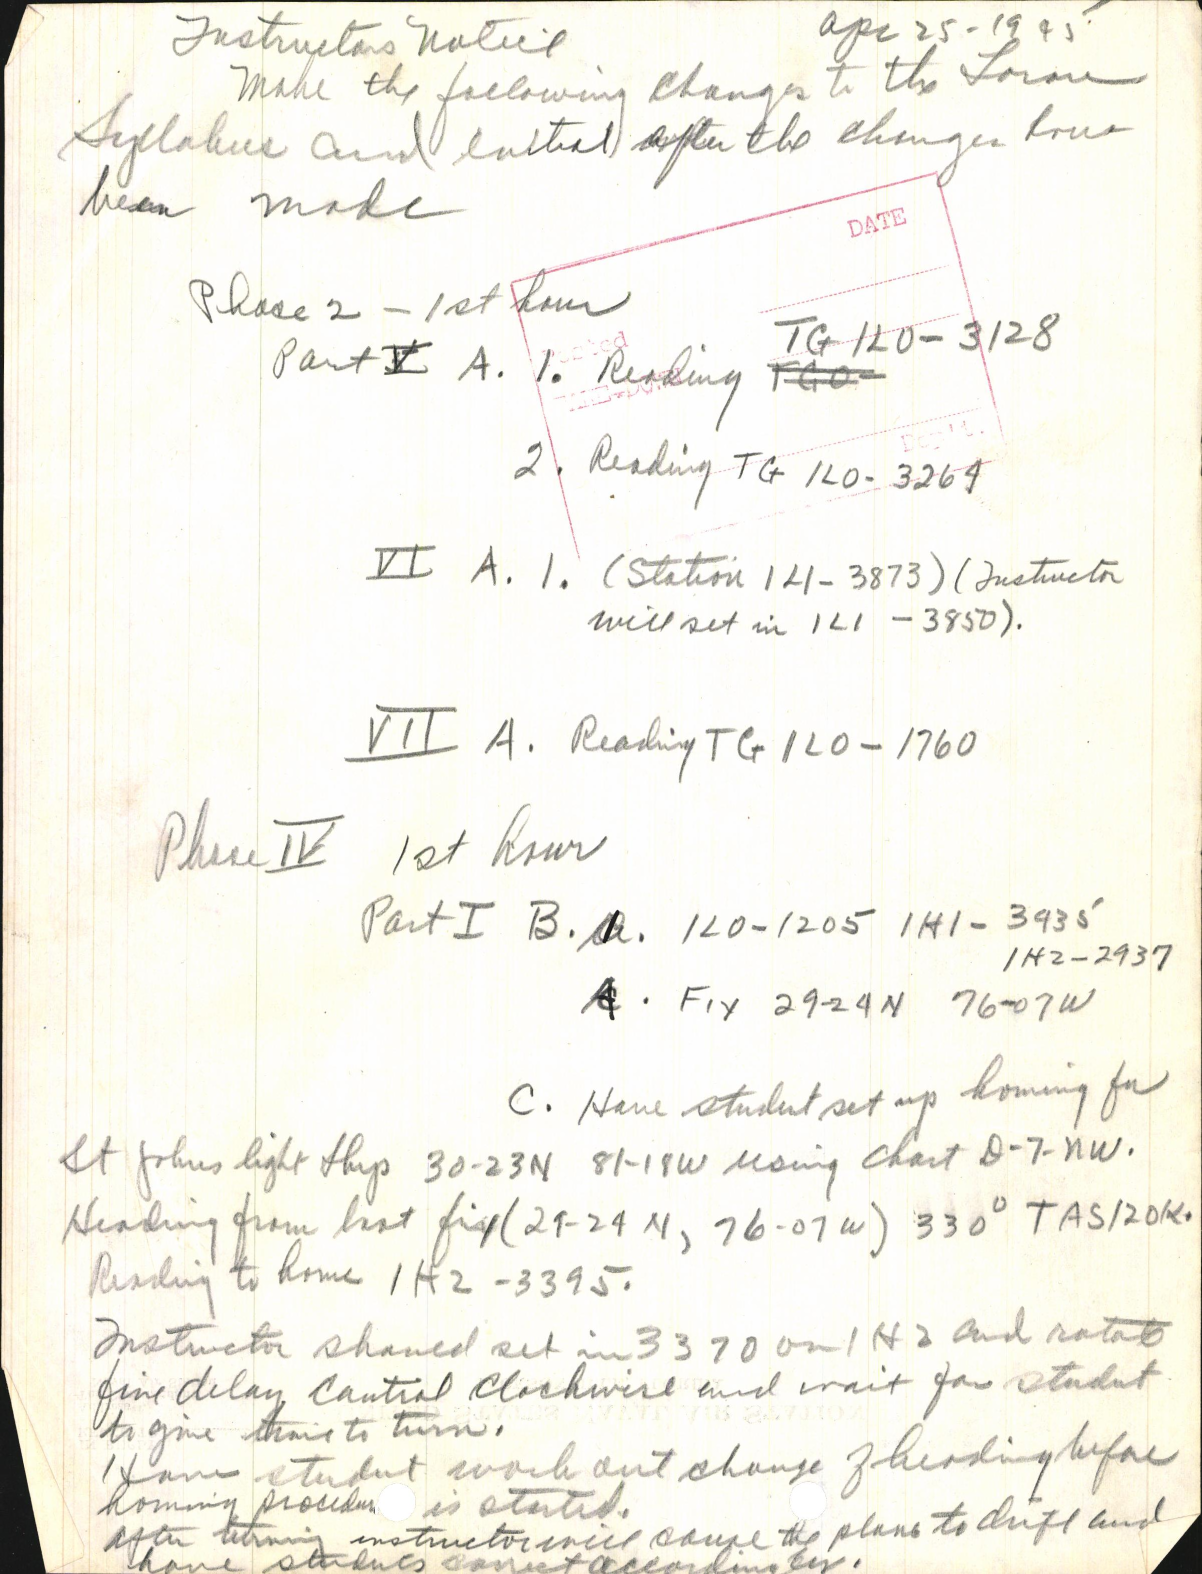 Instructors Notice Apr 25-1945
Make the following changes to the Loran
Syllabus and initial after the changes have
been made
DATE
Phase 2 - 1st hour
TG 1L0-3128
Part V A. 1. Reading TGO-
2. Reading TG 1L0-3264
Dep't.
VI A. 1. (Station 1L1-3873) (Instructor
will set in 1L1 -3850).
VII A. Reading TG 1L0-1760
Phase IV 1st hour
Part I B. 1. 1L0-1205 1H1-3935
1H2-2937
4. Fix 29-24N 76-07W
C. Have student set up homing for
St Johns light Ship 30-23N 81-18W using Chart D-7-NW.
Heading from last fix (29-24N, 76-07W) 330° TAS 120K.
Reading to home 1H2 -3395.
Instructor should set in 3370 on 1H2 and rotate
fine delay control clockwise and wait for student
to give time to turn.
Have student work out change of heading before
homing procedure is started.
After turning instructor will cause the plane to drift and
have students correct accordingly.